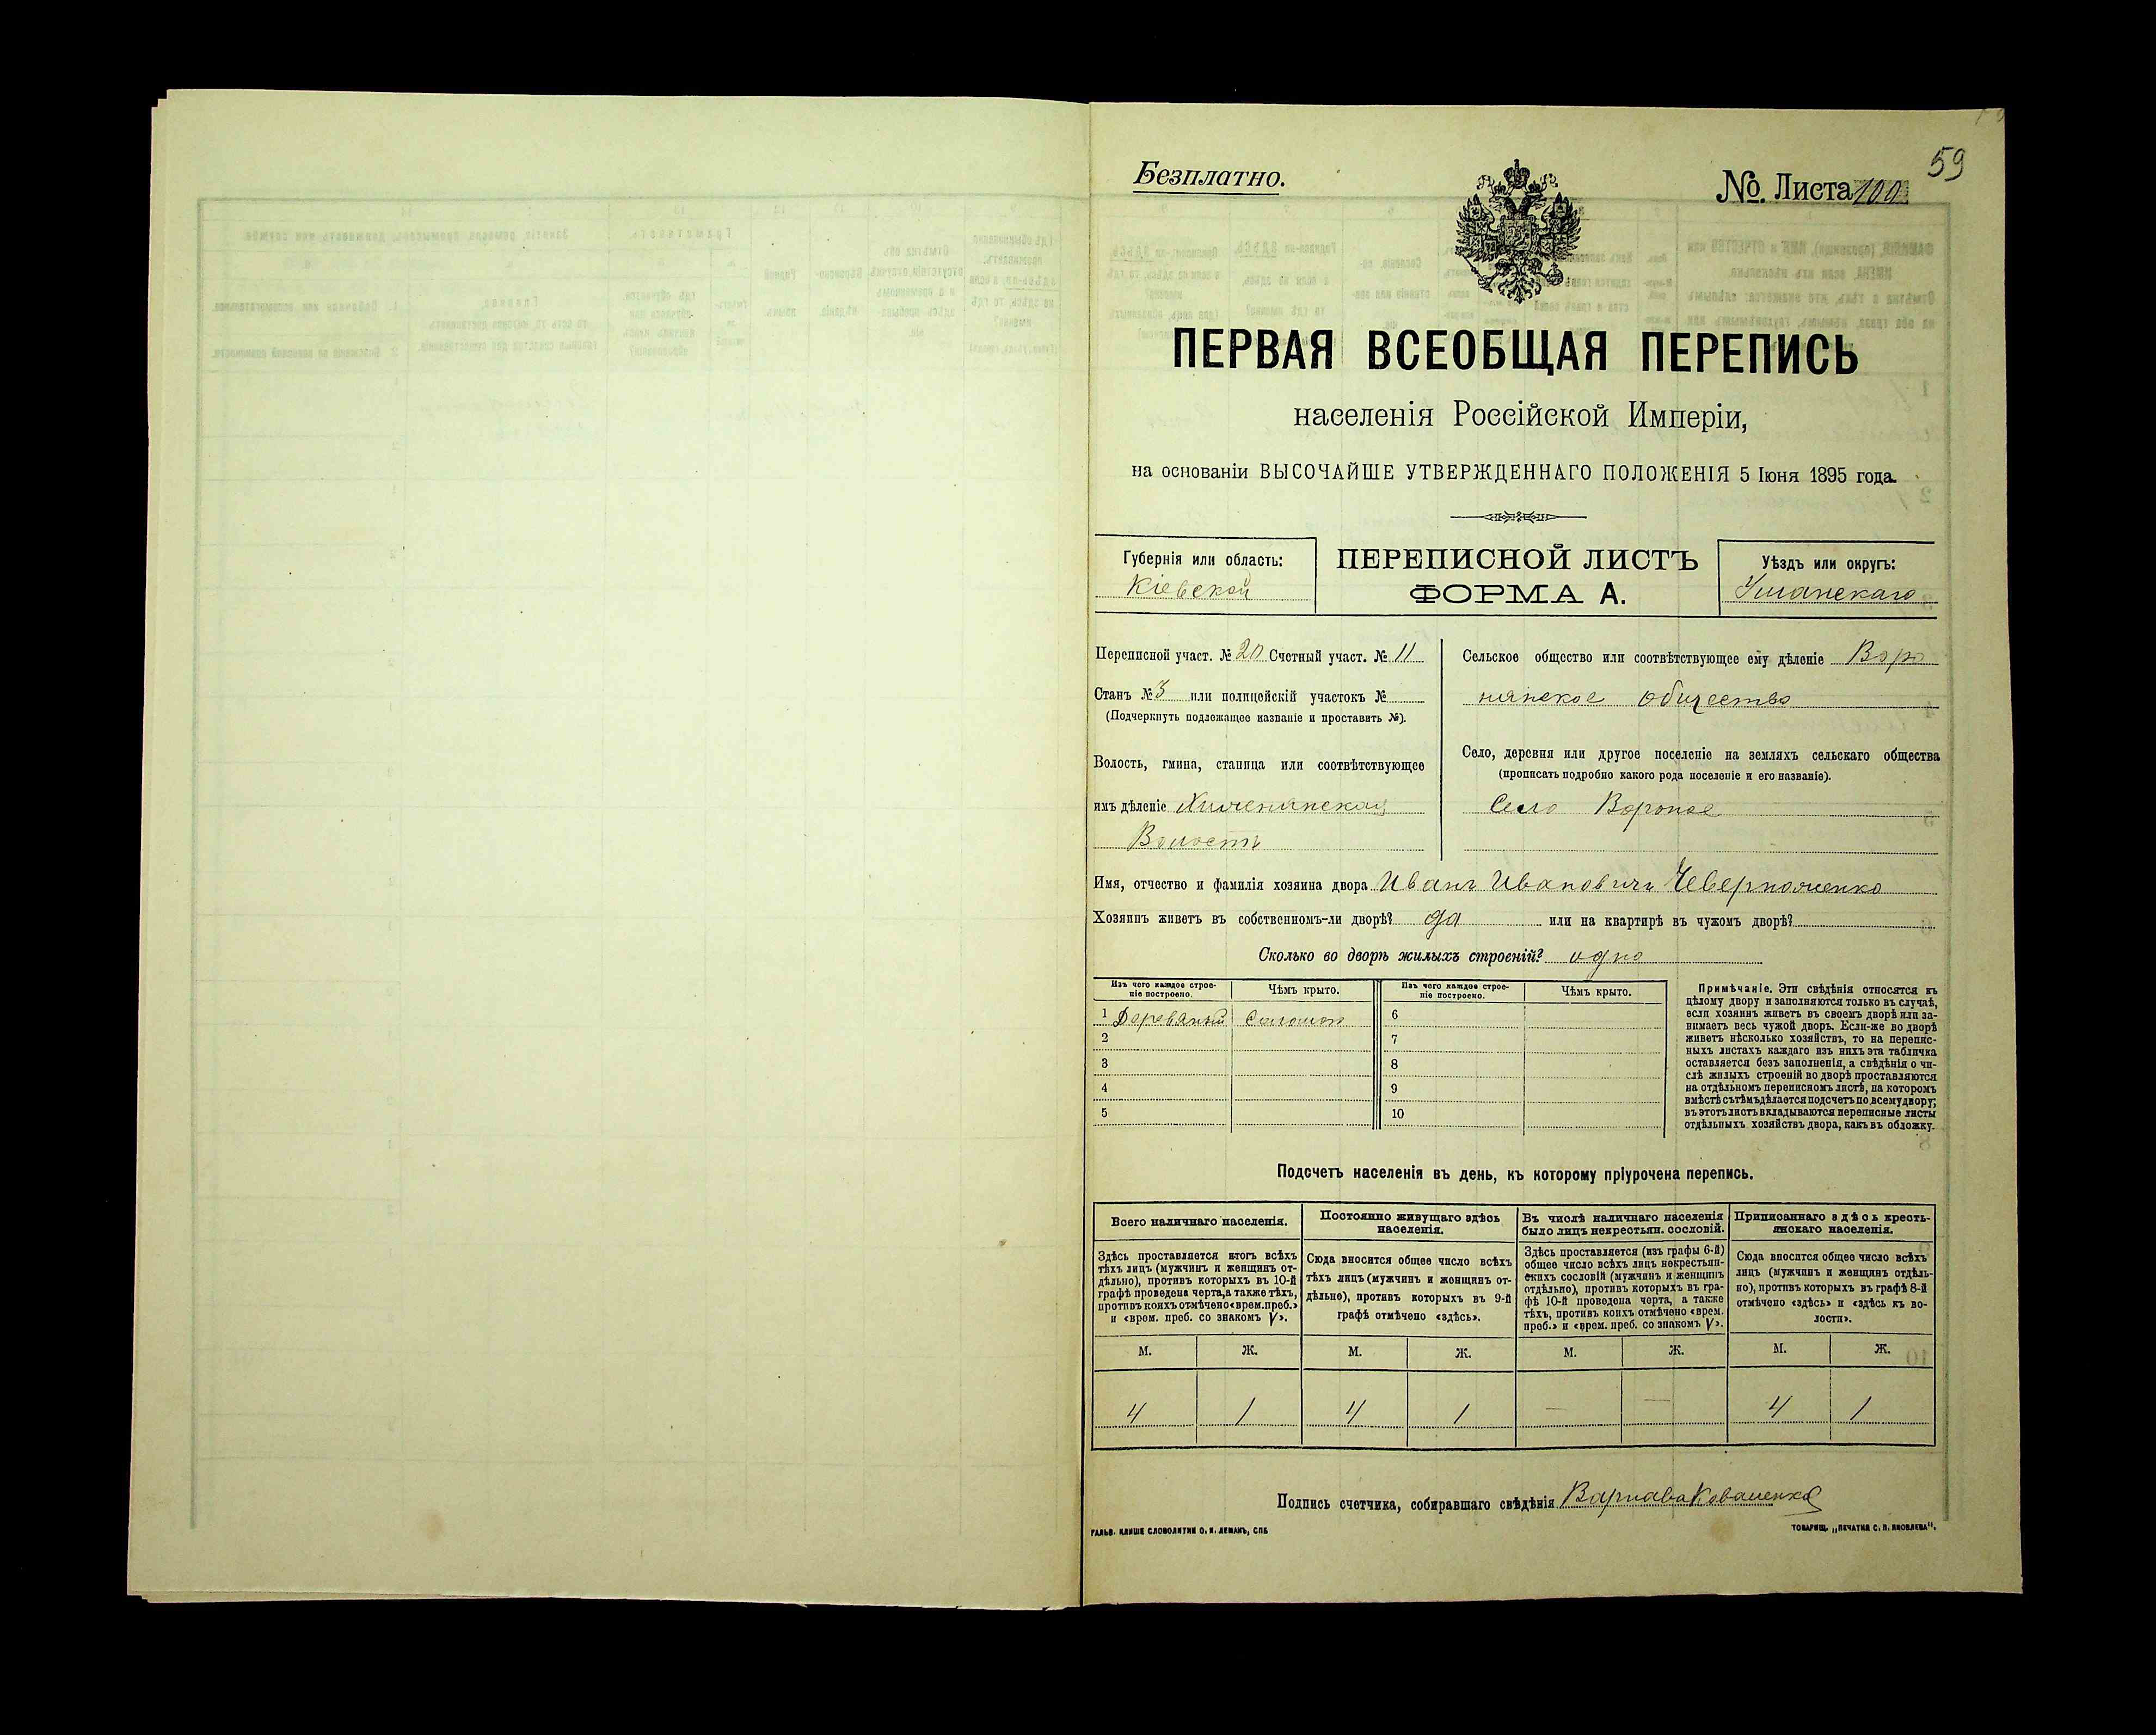 59
Безплатно.
№. Листа 100
ПЕРВАЯ ВСЕОБЩАЯ ПЕРЕПИСЬ
населенія Россійской Имперіи,
на основаніи ВЫСОЧАЙШЕ УТВЕРЖДЕННАГО ПОЛОЖЕНІЯ 5 Іюня 1895 года.
Губернія или область:
Кіевской
ПЕРЕПИСНОЙ ЛИСТЪ
ФОРМА А.
Уѣздъ или округъ:
Уманскаго
Переписной участ. № 20 Счетный участ. № 11
Станъ № 3 или полицейскій участокъ №
(Подчеркнуть подлежащее названіе и проставить №).
Волость, гмина, станица или соотвѣтствующее
имъ дѣленіе
Волость
Сельское общество или соотвѣтствующее ему дѣленіе Воро
нянское общество
Село, деревня или другое поселеніе на земляхъ сельскаго общества
(прописать подробно какого рода поселеніе и его названіе).
Село Вороное
Имя, отчество и фамилія хозяина двора Иванъ Ивановичъ
Хозяинъ живетъ въ собственномъ-ли дворѣ? да или на квартирѣ въ чужомъ дворѣ?
Сколько во дворѣ жилыхъ строеній? одно
Изъ чего каждое строе-
ніе построено.
Чѣмъ крыто.
Изъ чего каждое строе-
ніе построено.
Чѣмъ крыто.
1 Деревяный Соломой
2
3
4
5
6
7
8
9
10
Примѣчаніе. Эти свѣдѣнія относятся къ
цѣлому двору и заполняются только въ случаѣ,
если хозяинъ живетъ въ своемъ дворѣ или за-
нимаетъ весь чужой дворъ. Если-же во дворѣ
живетъ нѣсколько хозяйствъ, то на перепис-
ныхъ листахъ каждаго изъ нихъ эта табличка
оставляется безъ заполненія, а свѣдѣнія о чи-
слѣ жилыхъ строеній во дворѣ проставляются
на отдѣльномъ переписномъ листѣ, на которомъ
вмѣстѣ съ тѣмъ дѣлается подсчетъ по всему двору;
въ этотъ листъ вкладываются переписные листы
отдѣльныхъ хозяйствъ двора, какъ въ обложку.
Подсчетъ населенія въ день, къ которому пріурочена перепись.
Всего наличнаго населенія.
Здѣсь проставляется итогъ всѣхъ
тѣхъ лицъ (мужчинъ и женщинъ от-
дѣльно), противъ которыхъ въ 10-й
графѣ проведена черта, а также тѣхъ,
противъ коихъ отмѣчено «врем. преб.»
и «врем. преб. со знакомъ V».
Постоянно живущаго здѣсь
населенія.
Сюда вносится общее число всѣхъ
тѣхъ лицъ (мужчинъ и женщинъ от-
дѣльно), противъ которыхъ въ 9-й
графѣ отмѣчено «здѣсь».
Въ числѣ наличнаго населенія
было лицъ некрестьян. сословій.
Здѣсь проставляется (изъ графы 6-й)
общее число всѣхъ лицъ некрестьян-
скихъ сословій (мужчинъ и женщинъ
отдѣльно), противъ которыхъ въ гра-
фѣ 10-й проведена черта, а также
тѣхъ, противъ коихъ отмѣчено «врем.
преб.» и «врем. преб. со знакомъ V».
Приписаннаго здѣсь кресть-
янскаго населенія.
Сюда вносится общее число всѣхъ
лицъ (мужчинъ и женщинъ отдѣль-
но), противъ которыхъ въ графѣ 8-й
отмѣчено «здѣсь» и «здѣсь къ во-
лости».
М. Ж. М. Ж. М. Ж. М. Ж.
4 1 4 1 — — 4 1
Подпись счетчика, собиравшаго свѣдѣнія Варнава Коваленко
ГАЛЬВ. КЛИШЕ СЛОВОЛИТНИ О. И. ЛЕМАНЪ, СПБ
ТОВАРИЩ. „ПЕЧАТНЯ С. П. ЯКОВЛЕВА".